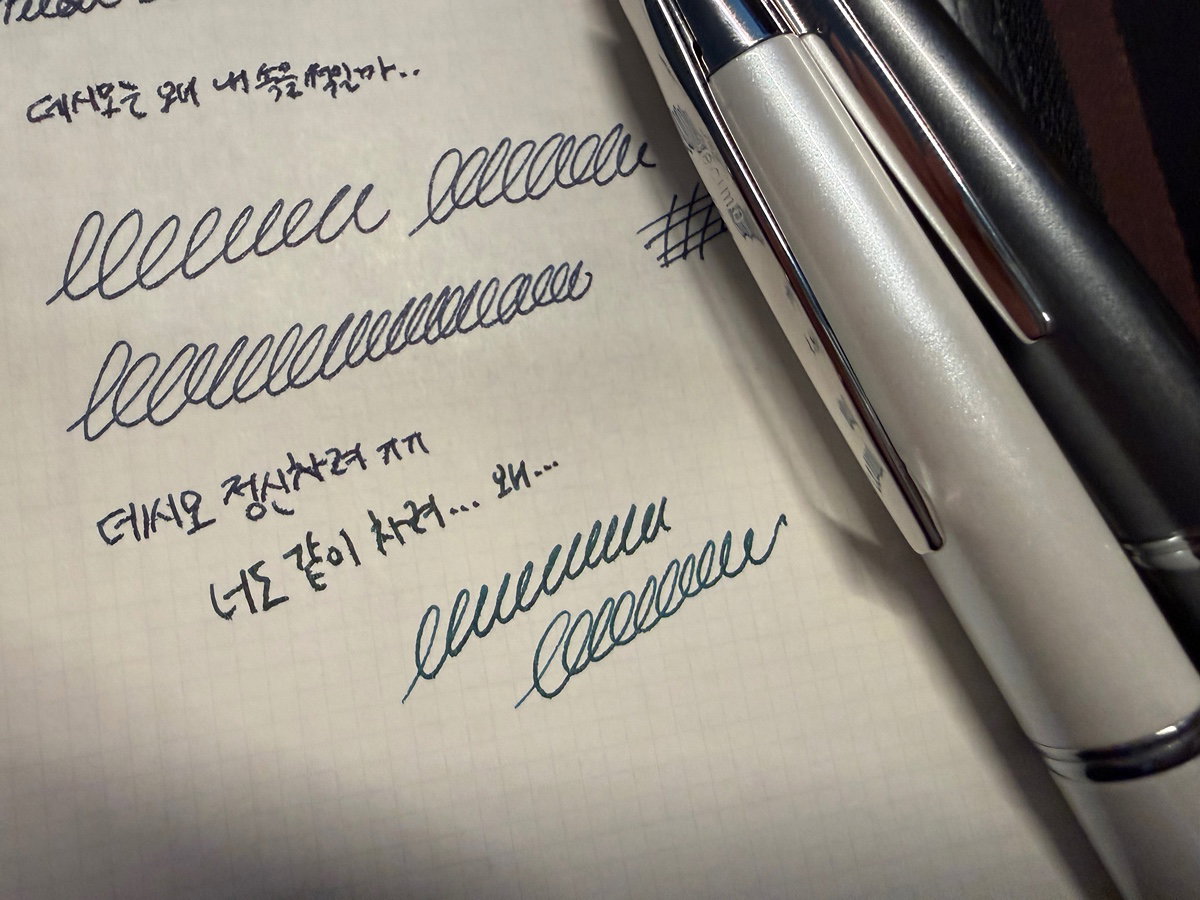 데시모는 왜 내 속을 썩일까..
데시모 정신차려 ㅠㅠ
너도 같이 차려... 왜...